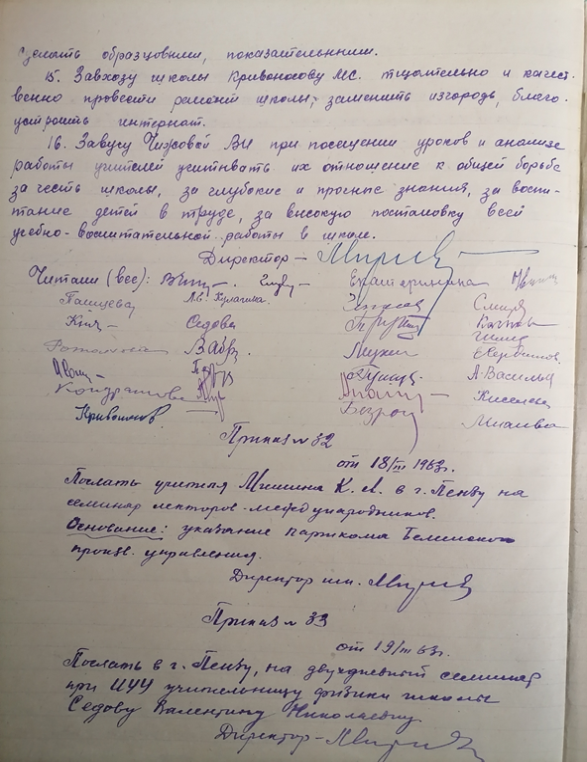 сделать образцовыми, показательными.
15. Завхозу школы Кривоносову М.С. тщательно и качест-
венно провести ремонт школы, заменить изгородь, благо-
устроить интернат.
16. Завучу Чижовой В.И при посещении уроков и анализе
работы учителей учитывать их отношение к общей борьбе
за честь школы, за глубокие и прочные знания, за воспи-
тание детей в труде, за высокую постановку всей
учебно-воспитательной работы в школе.
Директор –
Читали (все): Екатеринина
Седова
Кондратова А. Васильев
Приказ № 32
от 18/III 1963г.
Послать учителя Мишина К. А. в г. Пензу на
семинар лекторов-международников.
Основание: указание парткома Белинского
произв. управления.
Директор шк.
Приказ № 33
от 19/III 63г.
Послать в г. Пензу, на двухдневный семинар
при ИУУ учительницу физики школы
Седову Валентину Николаевну.
Директор –